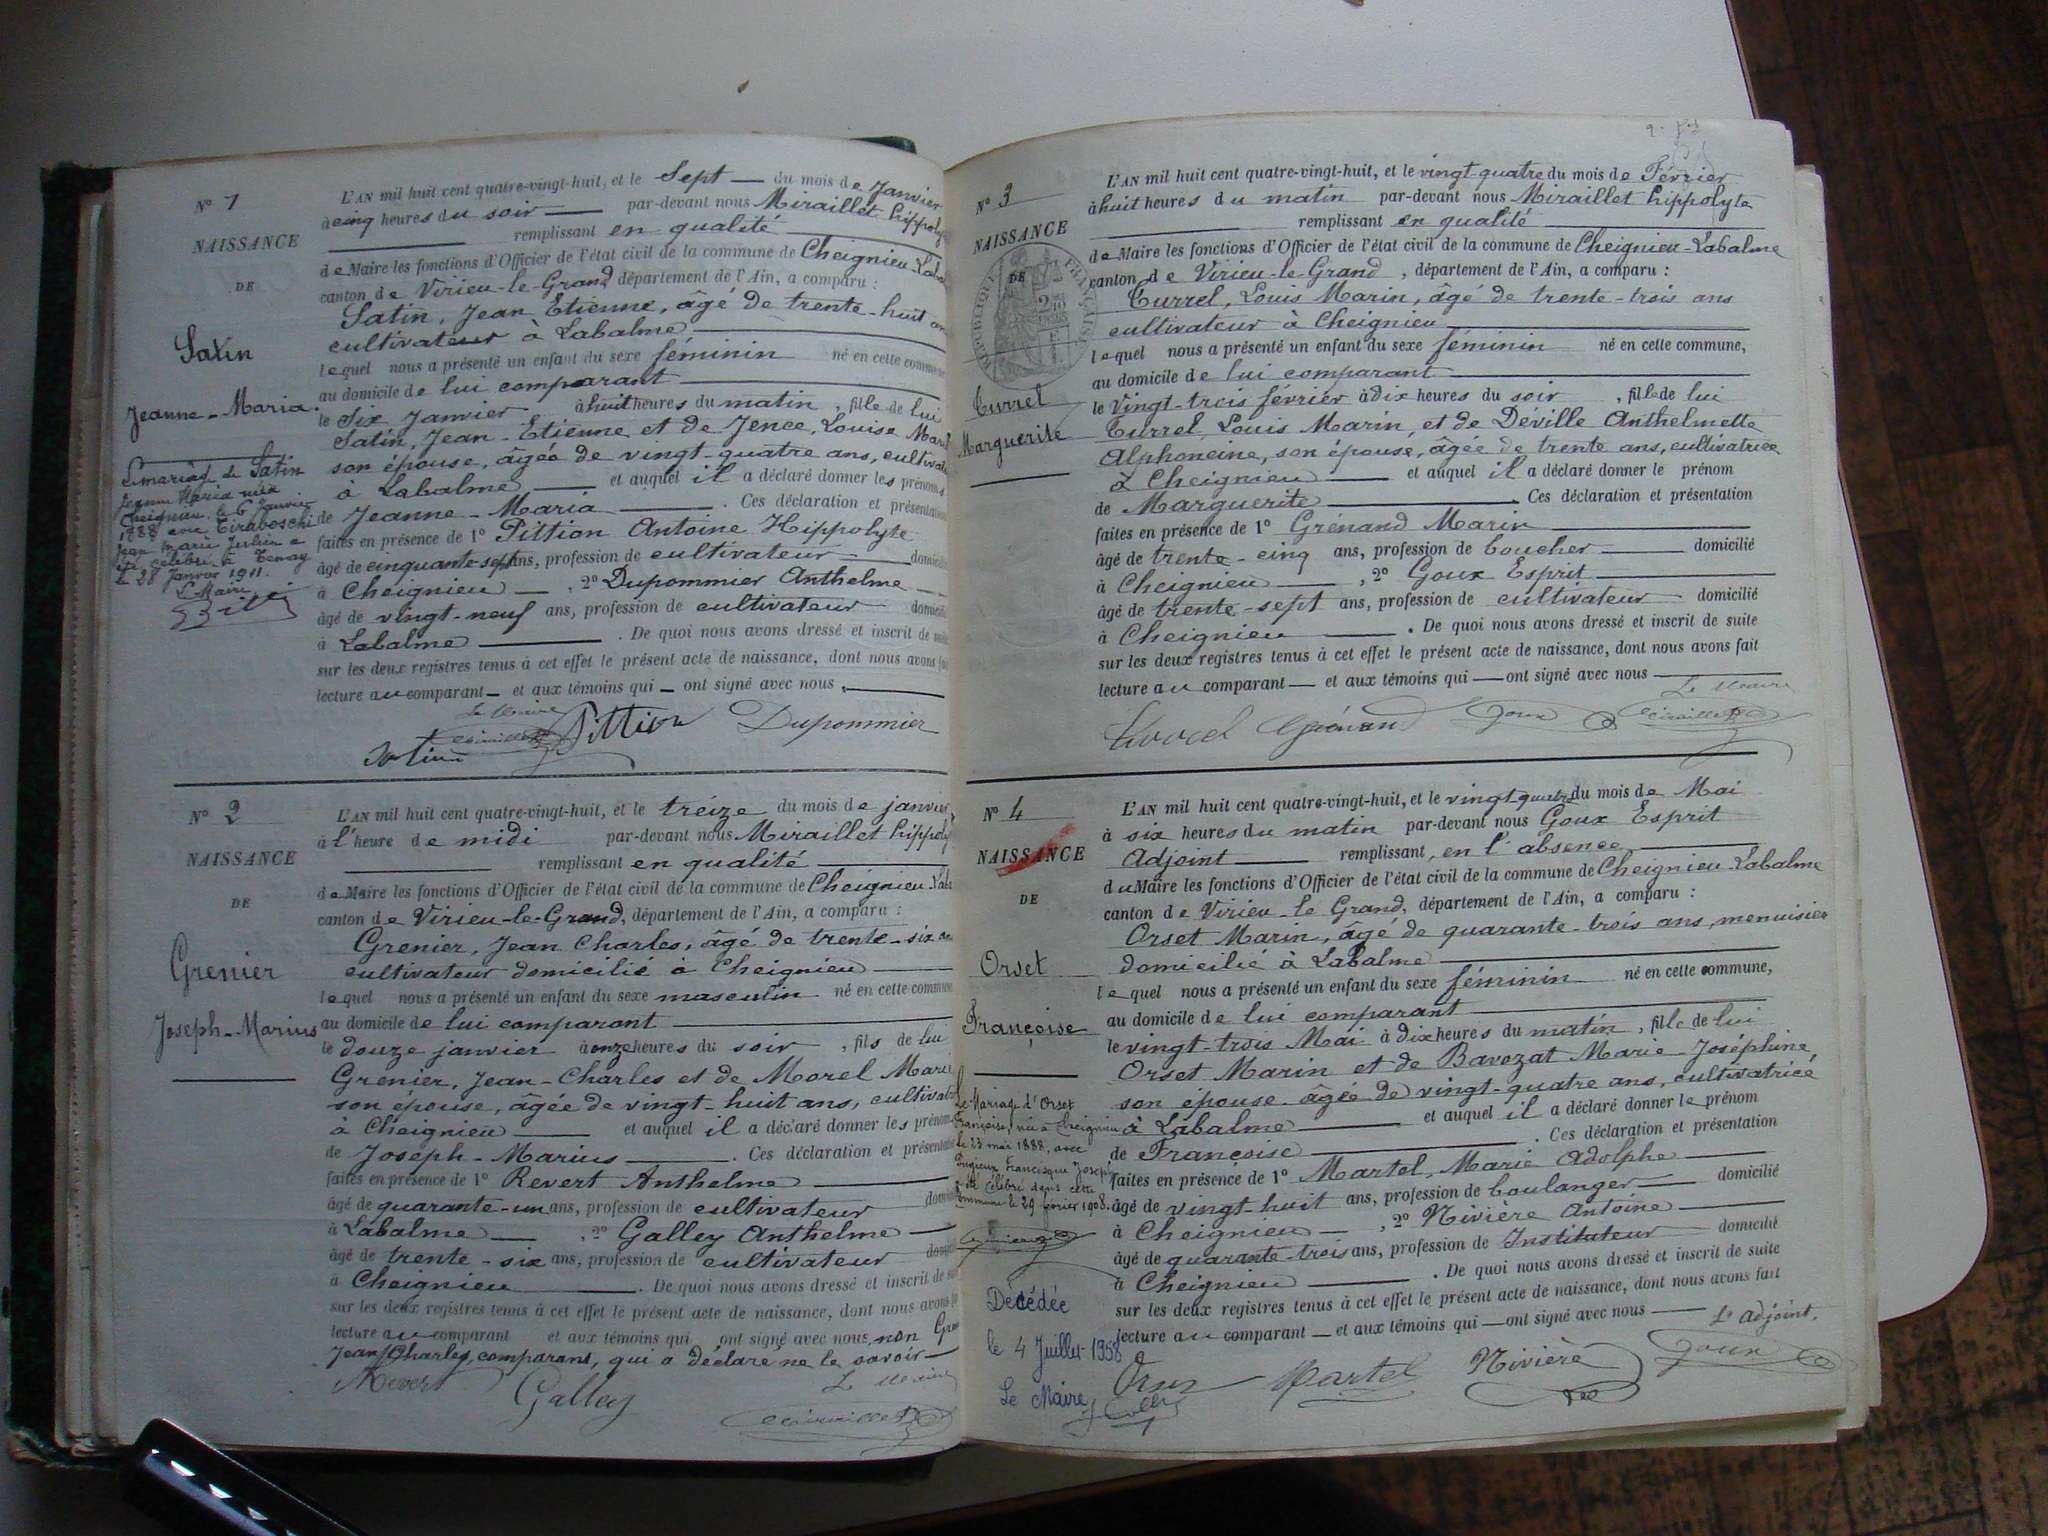 Nº 1
NAISSANCE
DE
Satin
Jeanne-Maria.
Le mariage de Satin
Jeanne Maria née à
Cheignieu le 6 Janvier
1888 avec Tiraboschi
Jean Marie Julien a
été célébré à Tenay
le 28 Janvier 1911.
Le Maire
L'AN mil huit cent quatre-vingt-huit, et le Sept du mois de Janvier
à cinq heures du soir par-devant nous Miraillet hippoly
remplissant en qualité
de Maire les fonctions d'Officier de l'état civil de la commune de Cheignieu-Laba
canton de Virieu-le-Grand département de l'Ain, a comparu :
Satin, Jean Etienne, âgé de trente-huit an
cultivateur à Labalme
lequel nous a présenté un enfant du sexe féminin né en cette commune
au domicile de lui comparant
le Six Janvier à huit heures du matin, fille de lui
Satin, Jean-Etienne et de Jence, Louise Mari
son épouse, âgée de vingt-quatre ans, cultivat
à Labalme et auquel il a déclaré donner les prénoms
de Jeanne-Maria. Ces déclaration et présentation
faites en présence de 1º Pittion Antoine Hippolyte
âgé de cinquante-sept ans, profession de cultivateur domicilié
à Cheignieu, 2º Dupommier Anthelme
âgé de vingt-neuf ans, profession de cultivateur domicilié
à Labalme. De quoi nous avons dressé et inscrit de suite
sur les deux registres tenus à cet effet le présent acte de naissance, dont nous avons fait
lecture au comparant et aux témoins qui ont signé avec nous.
Le Maire
Satin Miraillet Pittion Dupommier
Nº 2
NAISSANCE
DE
Grenier
Joseph-Marius
L'AN mil huit cent quatre-vingt-huit, et le treize du mois de janvier
à l'heure de midi par-devant nous Miraillet hippoly
remplissant en qualité
de Maire les fonctions d'Officier de l'état civil de la commune de Cheignieu-Laba
canton de Virieu-le-Grand, département de l'Ain, a comparu :
Grenier, Jean Charles, âgé de trente-six an
cultivateur domicilié à Cheignieu
lequel nous a présenté un enfant du sexe masculin né en cette commune
au domicile de lui comparant
le douze janvier à onze heures du soir, fils de lui
Grenier, Jean-Charles et de Morel Marie
son épouse, âgée de vingt-huit ans, cultivat
à Cheignieu et auquel il a déclaré donner les prénoms
de Joseph-Marius. Ces déclaration et présentation
faites en présence de 1º Revert Anthelme
âgé de quarante-un ans, profession de cultivateur domicilié
à Labalme, 2º Galley Anthelme
âgé de trente-six ans, profession de cultivateur domicilié
à Cheignieu. De quoi nous avons dressé et inscrit de suite
sur les deux registres tenus à cet effet le présent acte de naissance, dont nous avons fait
lecture au comparant et aux témoins qui ont signé avec nous, non Gren
Jean Charles, comparant, qui a déclaré ne le savoir
Revert Galley Le Maire
Miraillet
Nº 3
NAISSANCE
DE
RÉPUBLIQUE FRANÇAISE
Turrel
Marguerite
L'AN mil huit cent quatre-vingt-huit, et le vingt-quatre du mois de Février
à huit heures du matin par-devant nous Miraillet hippolyte
remplissant en qualité
de Maire les fonctions d'Officier de l'état civil de la commune de Cheignieu-Labalme
canton de Virieu-le-Grand, département de l'Ain, a comparu :
Turrel, Louis Marin, âgé de trente-trois ans
cultivateur à Cheignieu
lequel nous a présenté un enfant du sexe féminin né en cette commune,
au domicile de lui comparant
le Vingt-trois février à dix heures du soir, fille de lui
Turrel, Louis Marin, et de Déville Anthelmette
Alphoncine, son épouse, âgée de trente ans, cultivatrice
à Cheignieu et auquel il a déclaré donner le prénom
de Marguerite. Ces déclaration et présentation
faites en présence de 1º Grénand Marin
âgé de trente-cinq ans, profession de boucher domicilié
à Cheignieu, 2º Goux Esprit
âgé de trente-sept ans, profession de cultivateur domicilié
à Cheignieu. De quoi nous avons dressé et inscrit de suite
sur les deux registres tenus à cet effet le présent acte de naissance, dont nous avons fait
lecture au comparant et aux témoins qui ont signé avec nous
Le Maire
Grénand Goux Miraillet
Nº 4
NAISSANCE
DE
Orset
Françoise
Le Mariage d'Orset
Françoise, née à Cheignieu
le 23 mai 1888, avec
Francisque Joseph
a été célébré dans cette
commune le 29 février 1908.
Décédée
le 4 Juillet 1958
Le Maire
L'AN mil huit cent quatre-vingt-huit, et le vingt quatre du mois de Mai
à six heures du matin par-devant nous Goux Esprit
Adjoint remplissant, en l'absence
du Maire les fonctions d'Officier de l'état civil de la commune de Cheignieu-Labalme
canton de Virieu-le Grand, département de l'Ain, a comparu :
Orset Marin, âgé de quarante-trois ans, menuisier
domicilié à Labalme
lequel nous a présenté un enfant du sexe féminin né en cette commune,
au domicile de lui comparant
le vingt-trois Mai à dix heures du matin, fille de lui
Orset Marin et de Bavozat Marie-Joséphine,
son épouse. âgée de vingt-quatre ans, cultivatrice
à Labalme et auquel il a déclaré donner le prénom
de Françoise. Ces déclaration et présentation
faites en présence de 1º Martel, Marie Adolphe
âgé de vingt-huit ans, profession de boulanger domicilié
à Cheignieu, 2º Nivière Antoine
âgé de quarante-trois ans, profession de Instituteur domicilié
à Cheignieu. De quoi nous avons dressé et inscrit de suite
sur les deux registres tenus à cet effet le présent acte de naissance, dont nous avons fait
lecture au comparant et aux témoins qui ont signé avec nous
L'adjoint.
Orset Martel Nivière Goux